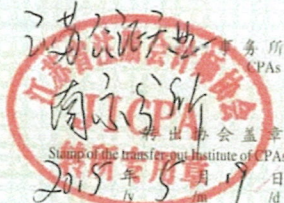 江苏公证天业 事务所
CPAs
南京分所
江苏省注册会计师协会
JICPA
转所专用章
转出协会盖章
Stamp of the transfer-out Institute of CPAs
2015年5月19日
/y /m /d